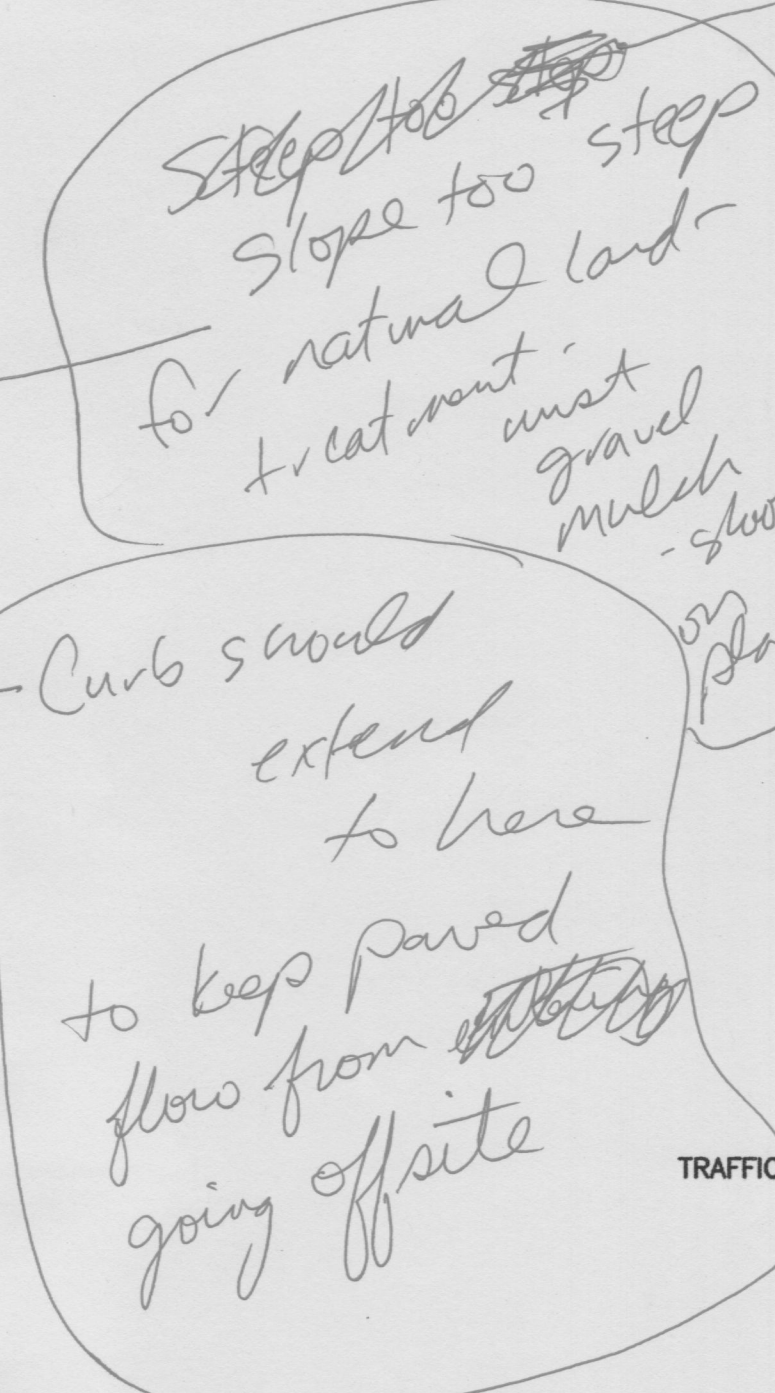 Steep too
slope too steep
for natural land-
treatment.
must
gravel
mulch
on
- Curb should
extend
to here
to keep paved
flow from
going offsite
TRAFFIC